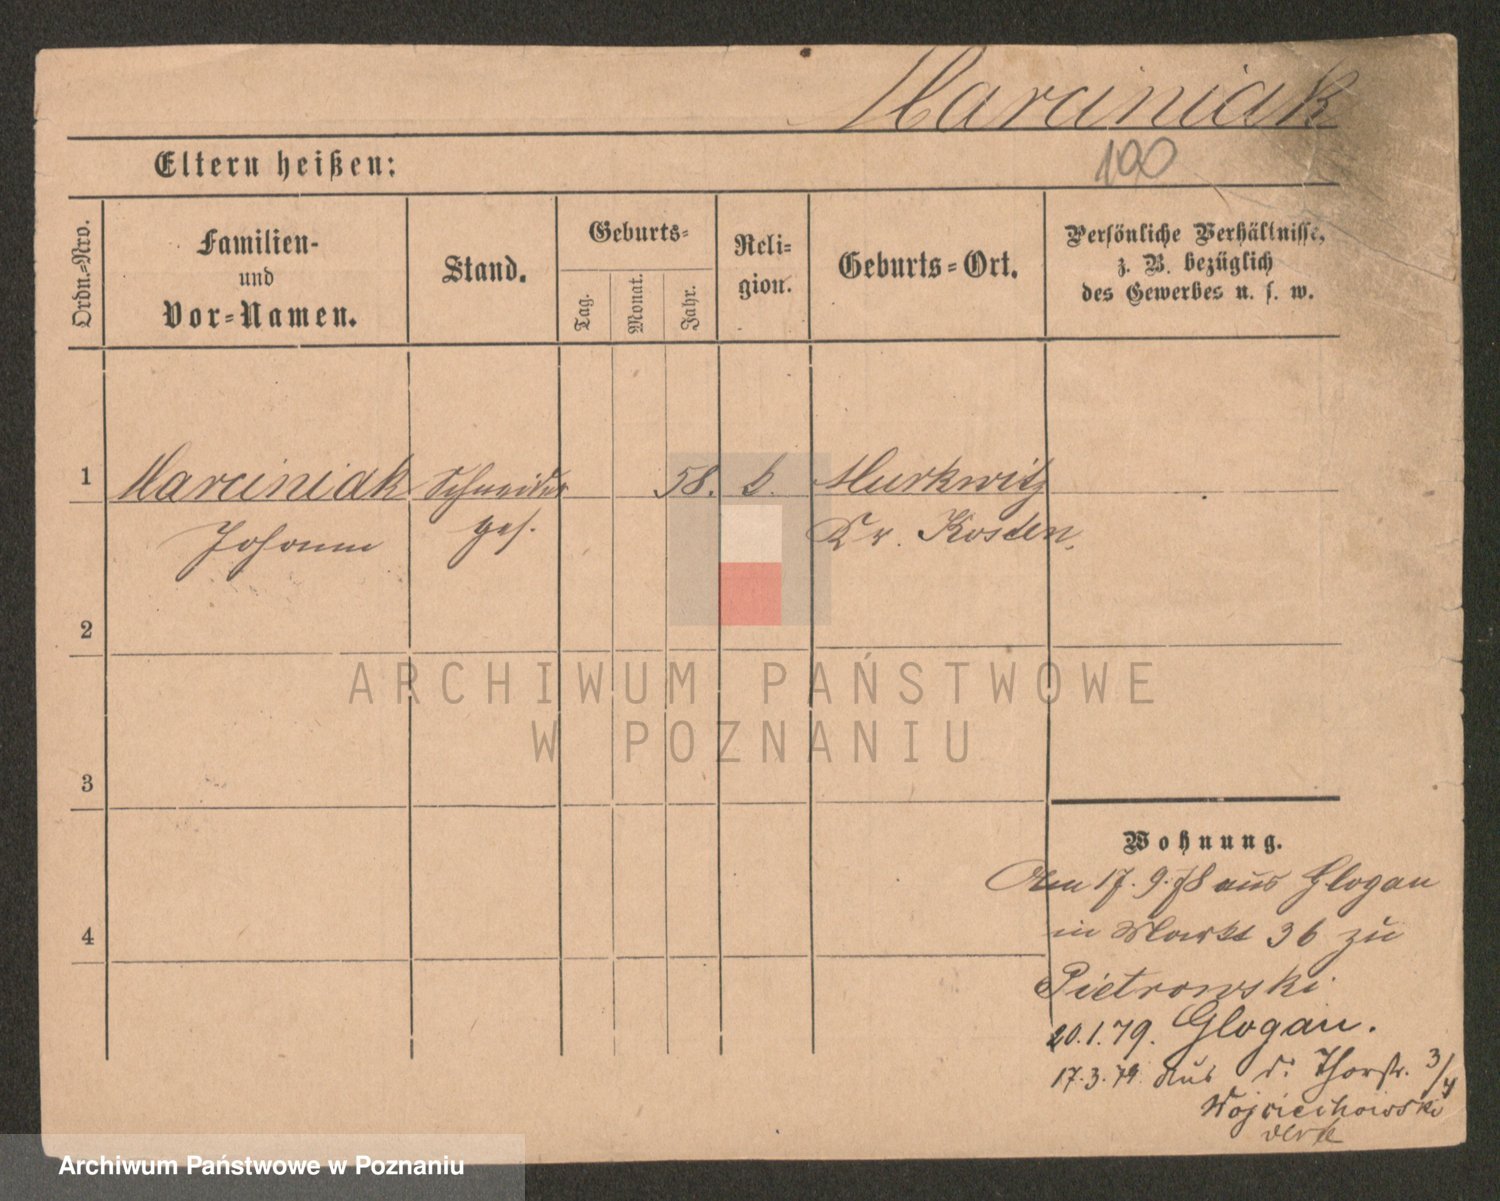 Marciniak
100
Eltern heißen:
Ordn.-Nro.
Familien-
und
Vor-Namen.
Stand.
Geburts-
Tag.
Monat.
Jahr.
Reli-
gion.
Geburts-Ort.
Persönliche Verhältnisse,
z. B. bezüglich
des Gewerbes u. s. w.
1
Marciniak
Schneider
58.
Murkwitz
Johann
ges.
Kr. Kosten.
2
ARCHIWUM PAŃSTWOWE
W POZNANIU
3
Wohnung.
Am 17.9.78 aus Glogau
in Markt 36 zu
4
Pietrowski
20.1.79. Glogau.
17.3.79 aus d. Thorstr. 3/4
Wojciechowski
Archiwum Państwowe w Poznaniu